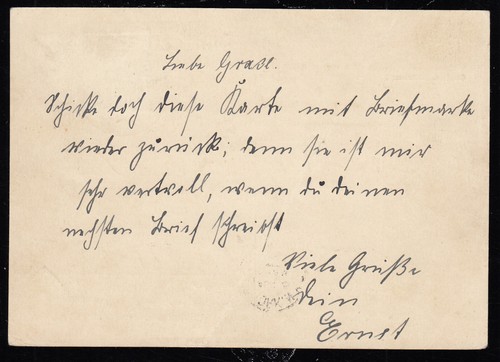 Liebe Gradl.
Schicke doch diese Karte mit Briefmarke
wieder zurück; denn sie ist mir
sehr wertvoll, wenn du deinen
nehsten Brief schreibst
Viele Grüße
Dein
Ernst